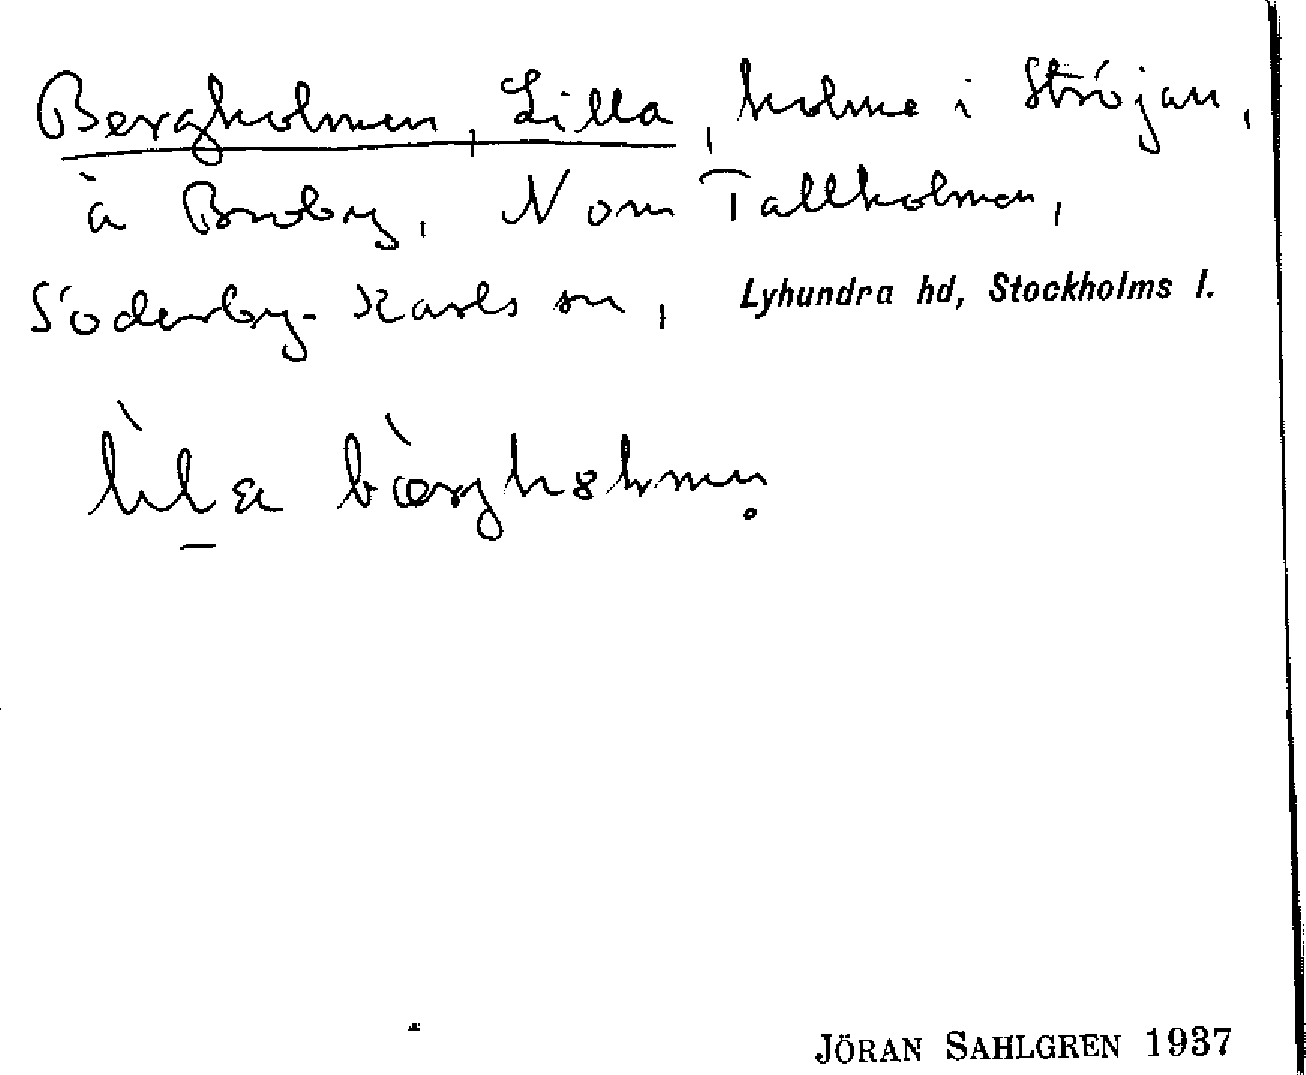 Bergholmen, Lilla, holme i Ströjan,
å Broby, N om Tallholmen,
Söderby-Karls sn, Lyhundra hd, Stockholms l.
JÖRAN SAHLGREN 1937